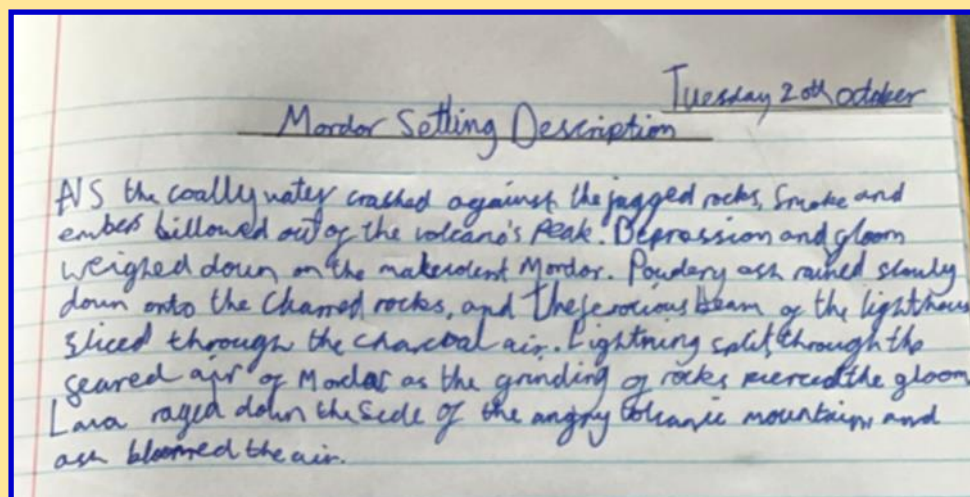 Tuesday 20th October
Mordor Setting Description
As the coally water crashed against the jagged rocks, smoke and
embers billowed out of the volcano's peak. Depression and gloom
weighed down on the Mordor. Powdery ash rained slowly
down onto the charred rocks, and The ferocious beam of the lighthous
sliced through the charcoal air. Lightning split through the
seared air of Mordor as the grinding of rocks pierced the gloom
Lava raged down the side of the angry volcanic mountain, and
ash the air.